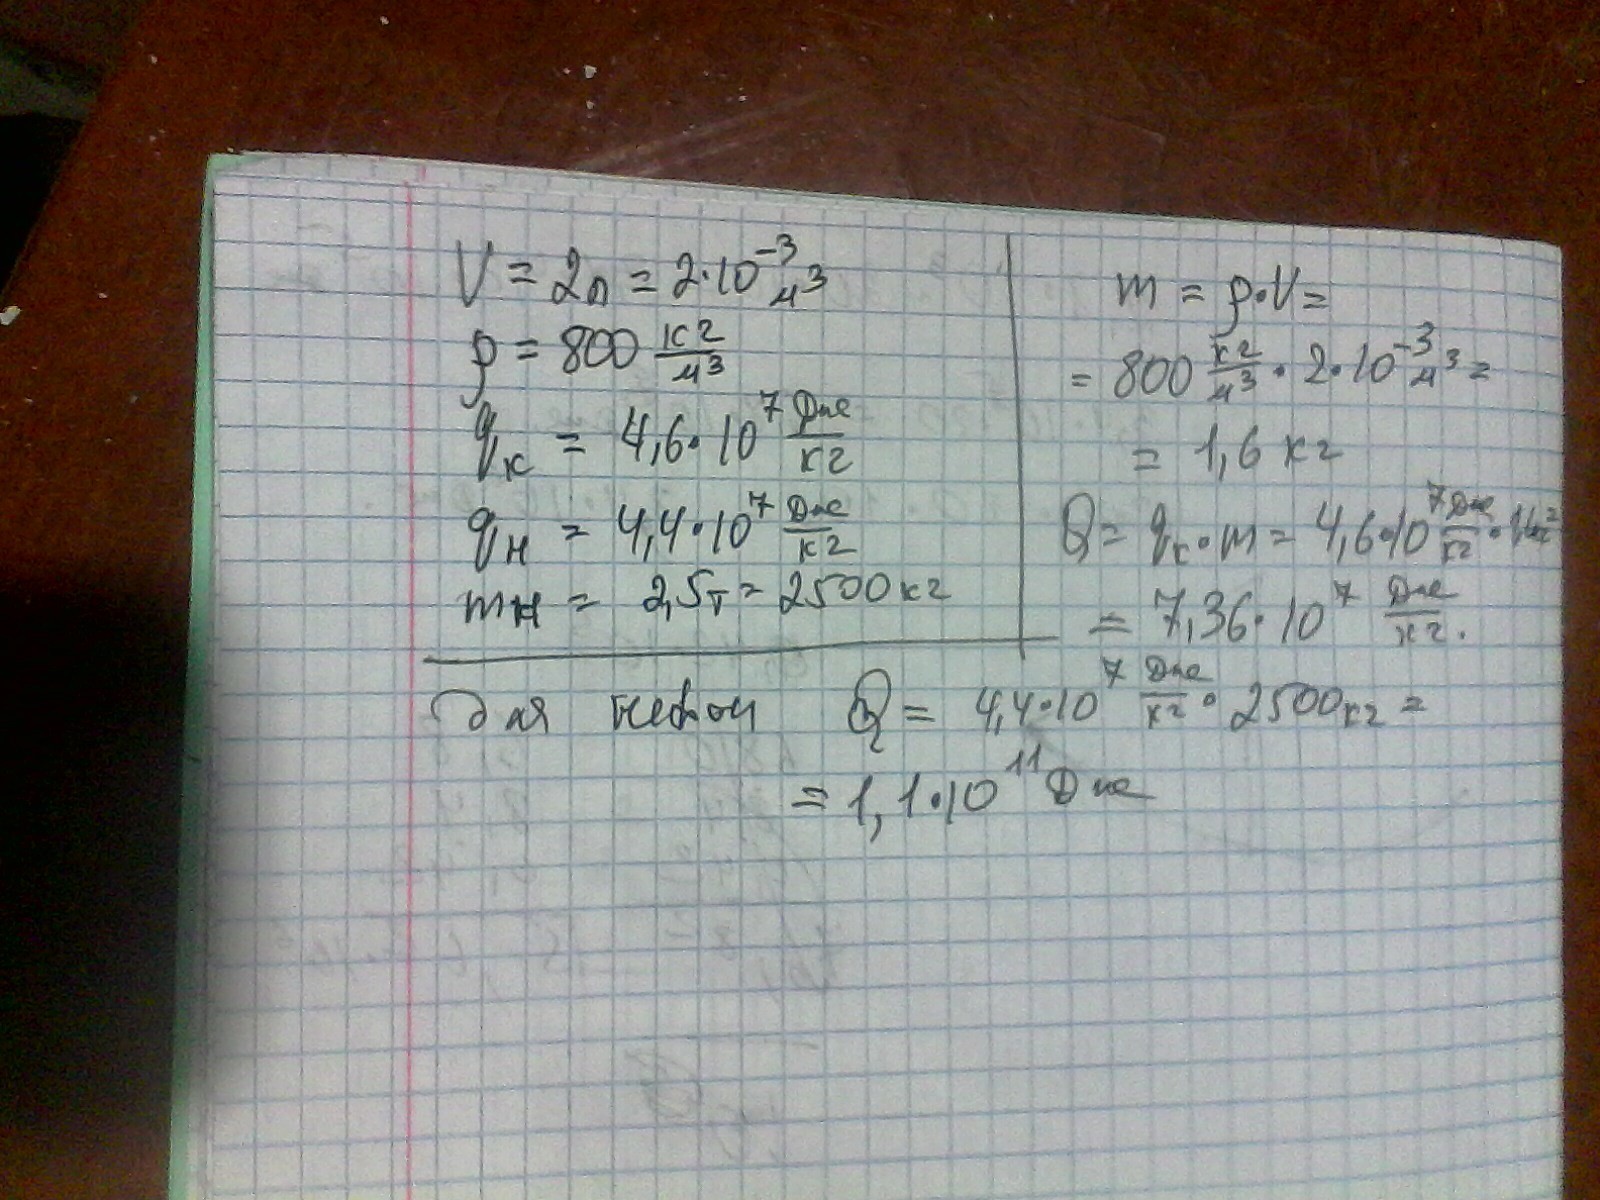 V = 2л = 2·10⁻³ м³
ρ = 800 кг/м³
qк = 4,6·10⁷ Дж/кг
qн = 4,4·10⁷ Дж/кг
mн = 2,5т = 2500 кг
m = ρ·V =
= 800 кг/м³ · 2·10⁻³ м³ =
= 1,6 кг
Q = qк·m = 4,6·10⁷ Дж/кг ·
= 7,36·10⁷ Дж/кг.
для нефти Q = 4,4·10⁷ Дж/кг · 2500кг =
= 1,1·10¹¹ Дж